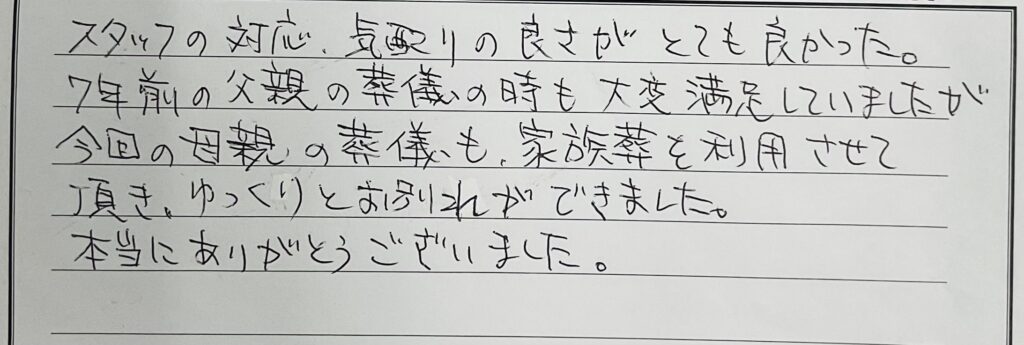 スタッフの対応、気配りの良さがとても良かった。
7年前の父親の葬儀の時も大変満足していましたが
今回の母親の葬儀も、家族葬を利用させて
頂き、ゆっくりとお別れができました。
本当にありがとうございました。